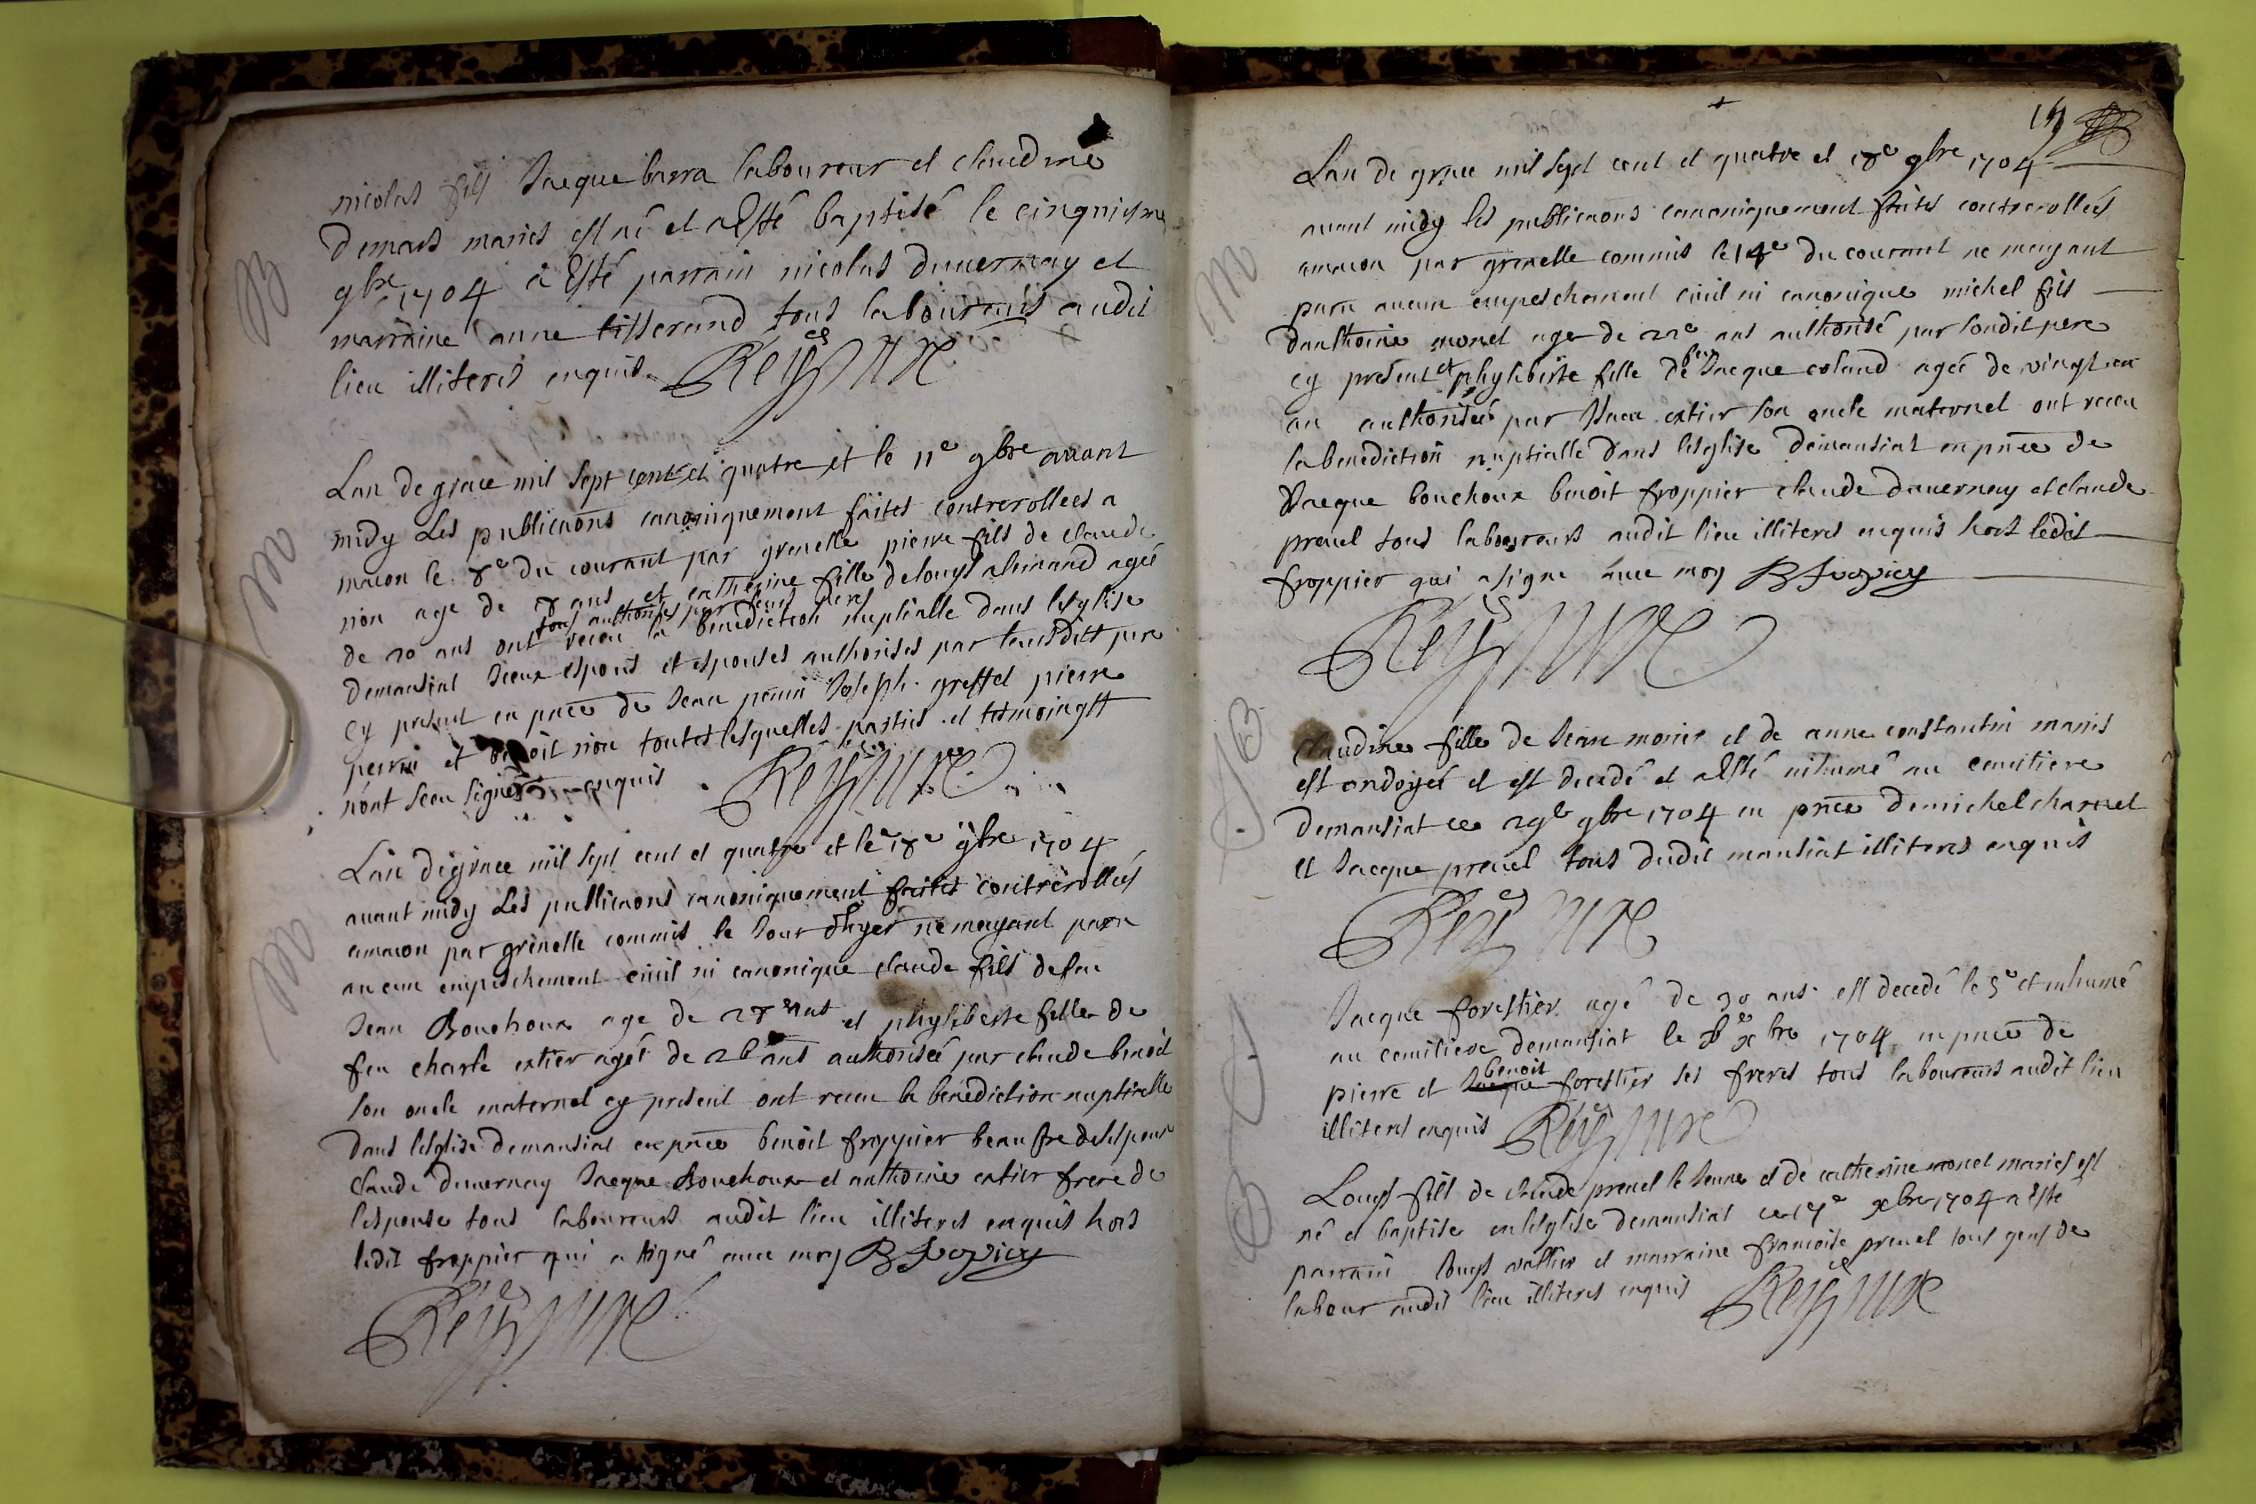 B
nicolas fils Jacque barra laboureur et claudine
demars maries est né et a Esté baptisé le cinquiesme
9bre 1704 a Esté parrain nicolas duuernay et
marraine anne tisserand tous laboureurs audit
lieu illiteres enquis
M
Lan de grace mil sept cent et quatre et le 11e 9bre auant
midy Les publicaons canoniquement faites controrollees a
macon le 8e du courant par grenelle pierre fils de claude
nion age de ans et catherine fille de louys alimand agée
tous authorisés par leurs peres
de 20 ans ont receu la benediction nuptialle dans lesglise
demansiat Iceux espoux et espouses authorises par leursditt pere
cy present en pnce de Jean perrin Joseph greffet pierre
perrin et benoit nion toutes lesquelles parties et tesmoingtt
nont sceu signer enquis
M
Lan de grace mil sept cent et quatre et le 18e 9bre 1704
auant midy Les publicaons canoniquement faites controrollées
amacon par grenelle commis le Jour dhyer ne mayant paru
aucun empeschement ciuil ni canonique claude fils de feu
Jean Bouchoux age de 28 ans et phyliberte fille de
feu charle extier agée de 26 ans authorisée par claude benoit
son oncle maternel cy present ont receu la benediction nuptialle
dans lesglise demansiat en pnce benoit froppier beau fre de lespoux
Claude duuernay Jacque Bouchoux et anthoine extier frere de
lespouse tous laboureurs audit lieu illiteres enquis hors
ledit froppier qui a signé auec moy B froppier
M
Lan de grace mil sept cent et quatre et 18e 9bre 1704
auant midy les publicaons canoniquement faites controrollées
amacon par grenelle commis le 14e du courant ne mayant
paru aucun empeschement ciuil ni canonique michel fils
danthoine monet age de 22e ans authorisé par sondit pere
cy present et phyliberte fille de feu Jacque coland agée de vingt un
an authorisée par extier son oncle maternel ont receu
la benediction nuptialle dans lesglise demansiat en pnce de
Jacque bouchoux benoit froppier claude duuernay et claude
preuel tous laboureurs audit lieu illiteres enquis hors ledit
froppier qui a signe auec moy B froppier
claudine fille de Jean monier et de anne constantin maries
est ondoyée et est decedé et a Esté inhumé au cemitiere
demansiat ce 29e 9bre 1704 en pnce de michel charnel
et Jacque preuel tous dudit mansiat illiteres enquis
Jacque forestier agé de 30 ans est decedé le 5e et inhumé
au cemitiere demansiat le xbre 1704 en pnce de
pierre et benoit forestier ses freres tous laboureurs audit lieu
illiteres enquis
B
Louys fils de claude preuel le Jeune et de catherine monet maries est
né et baptise en lesglise demansiat ce 17e xbre 1704 a Esté
parrain louys vallier et marraine francoise preuel tous gens de
labour audit lieu illiteres enquis